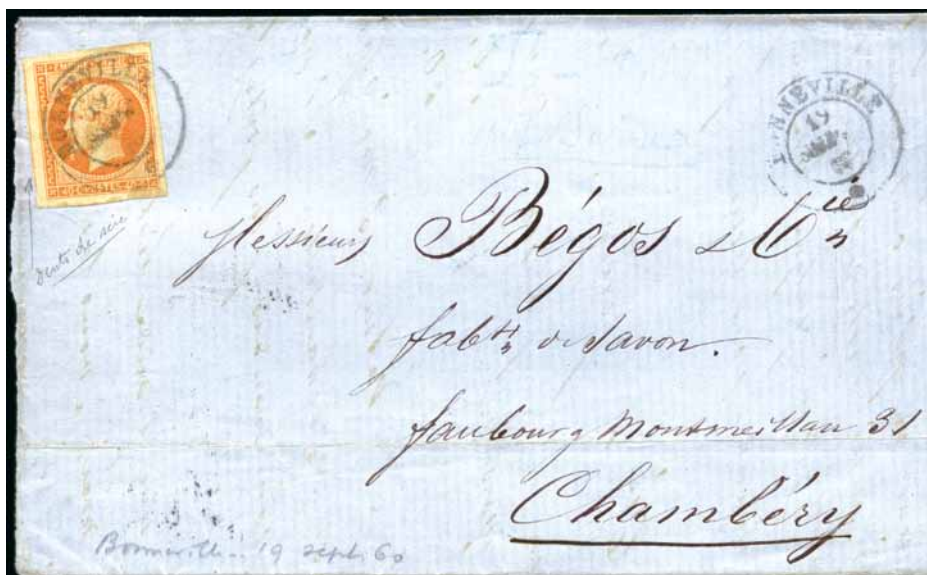 BONNEVILLE
19
SEPT.
BONNEVILLE
19
SEPT.
60
CENTES
dents de scie
Messieurs Bégos & Cie
fabts de Savon.
faubourg Montmeillan 31
Chambéry
Bonneville 19 sept 60